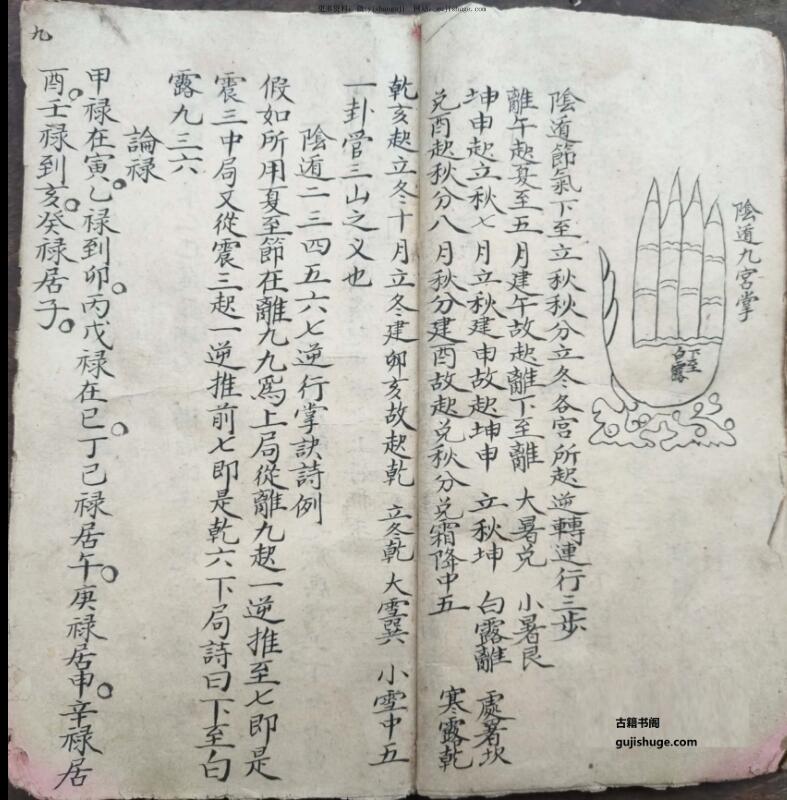 更多资料: 微:gujishuguji 网站: gujishuge.com
陰遁九宮掌
下至
白露
陰遁節氣下至立秋秋分立冬各宮所起逆轉連行三步
離午起夏至五月建午故起離下至離 大暑兌 小暑艮
坤申起立秋七月立秋建申故起坤申 立秋坤 白露離 處暑坎
兌酉起秋分八月秋分建酉故起兌秋分兌霜降中五 寒露乾
乾亥起立冬十月立冬建卯亥故起乾 立冬乾 大雪巽 小雪中五
一卦管三山之义也
陰遁二三四五六七逆行掌訣詩例
假如所用夏至節在離九九為上局從離九起一逆推至七即是
震三中局又從震三起一逆推前七即是乾六下局詩曰下至白
露九三六
論禄
甲禄在寅乙禄到卯丙戊禄在巳丁己禄居午庚禄居申辛禄居
酉壬禄到亥癸禄居子
九
古籍书阁
gujishuge.com